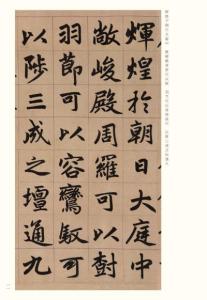 輝煌於朝日大庭中
敞峻殿周羅可以封
羽節可以容鸞馭可
以陟三成之壇通九